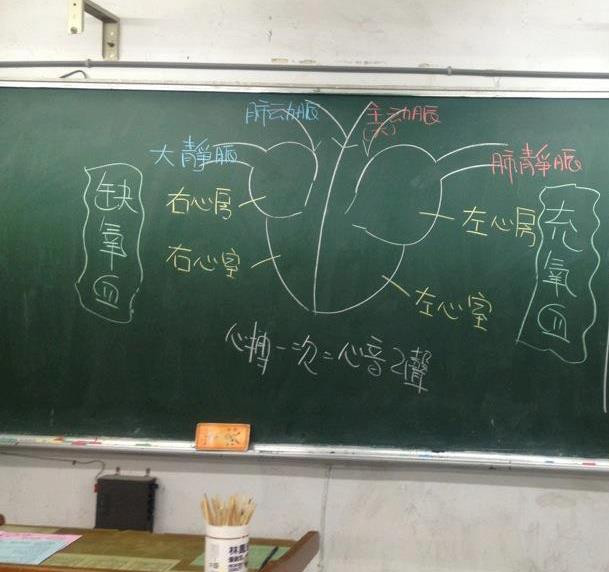 肺动脈
主动脈
(大)
大靜脈
肺靜脈
右心房
左心房
右心室
左心室
缺氧血
充氧血
心搏一次=心音2聲
林鳳